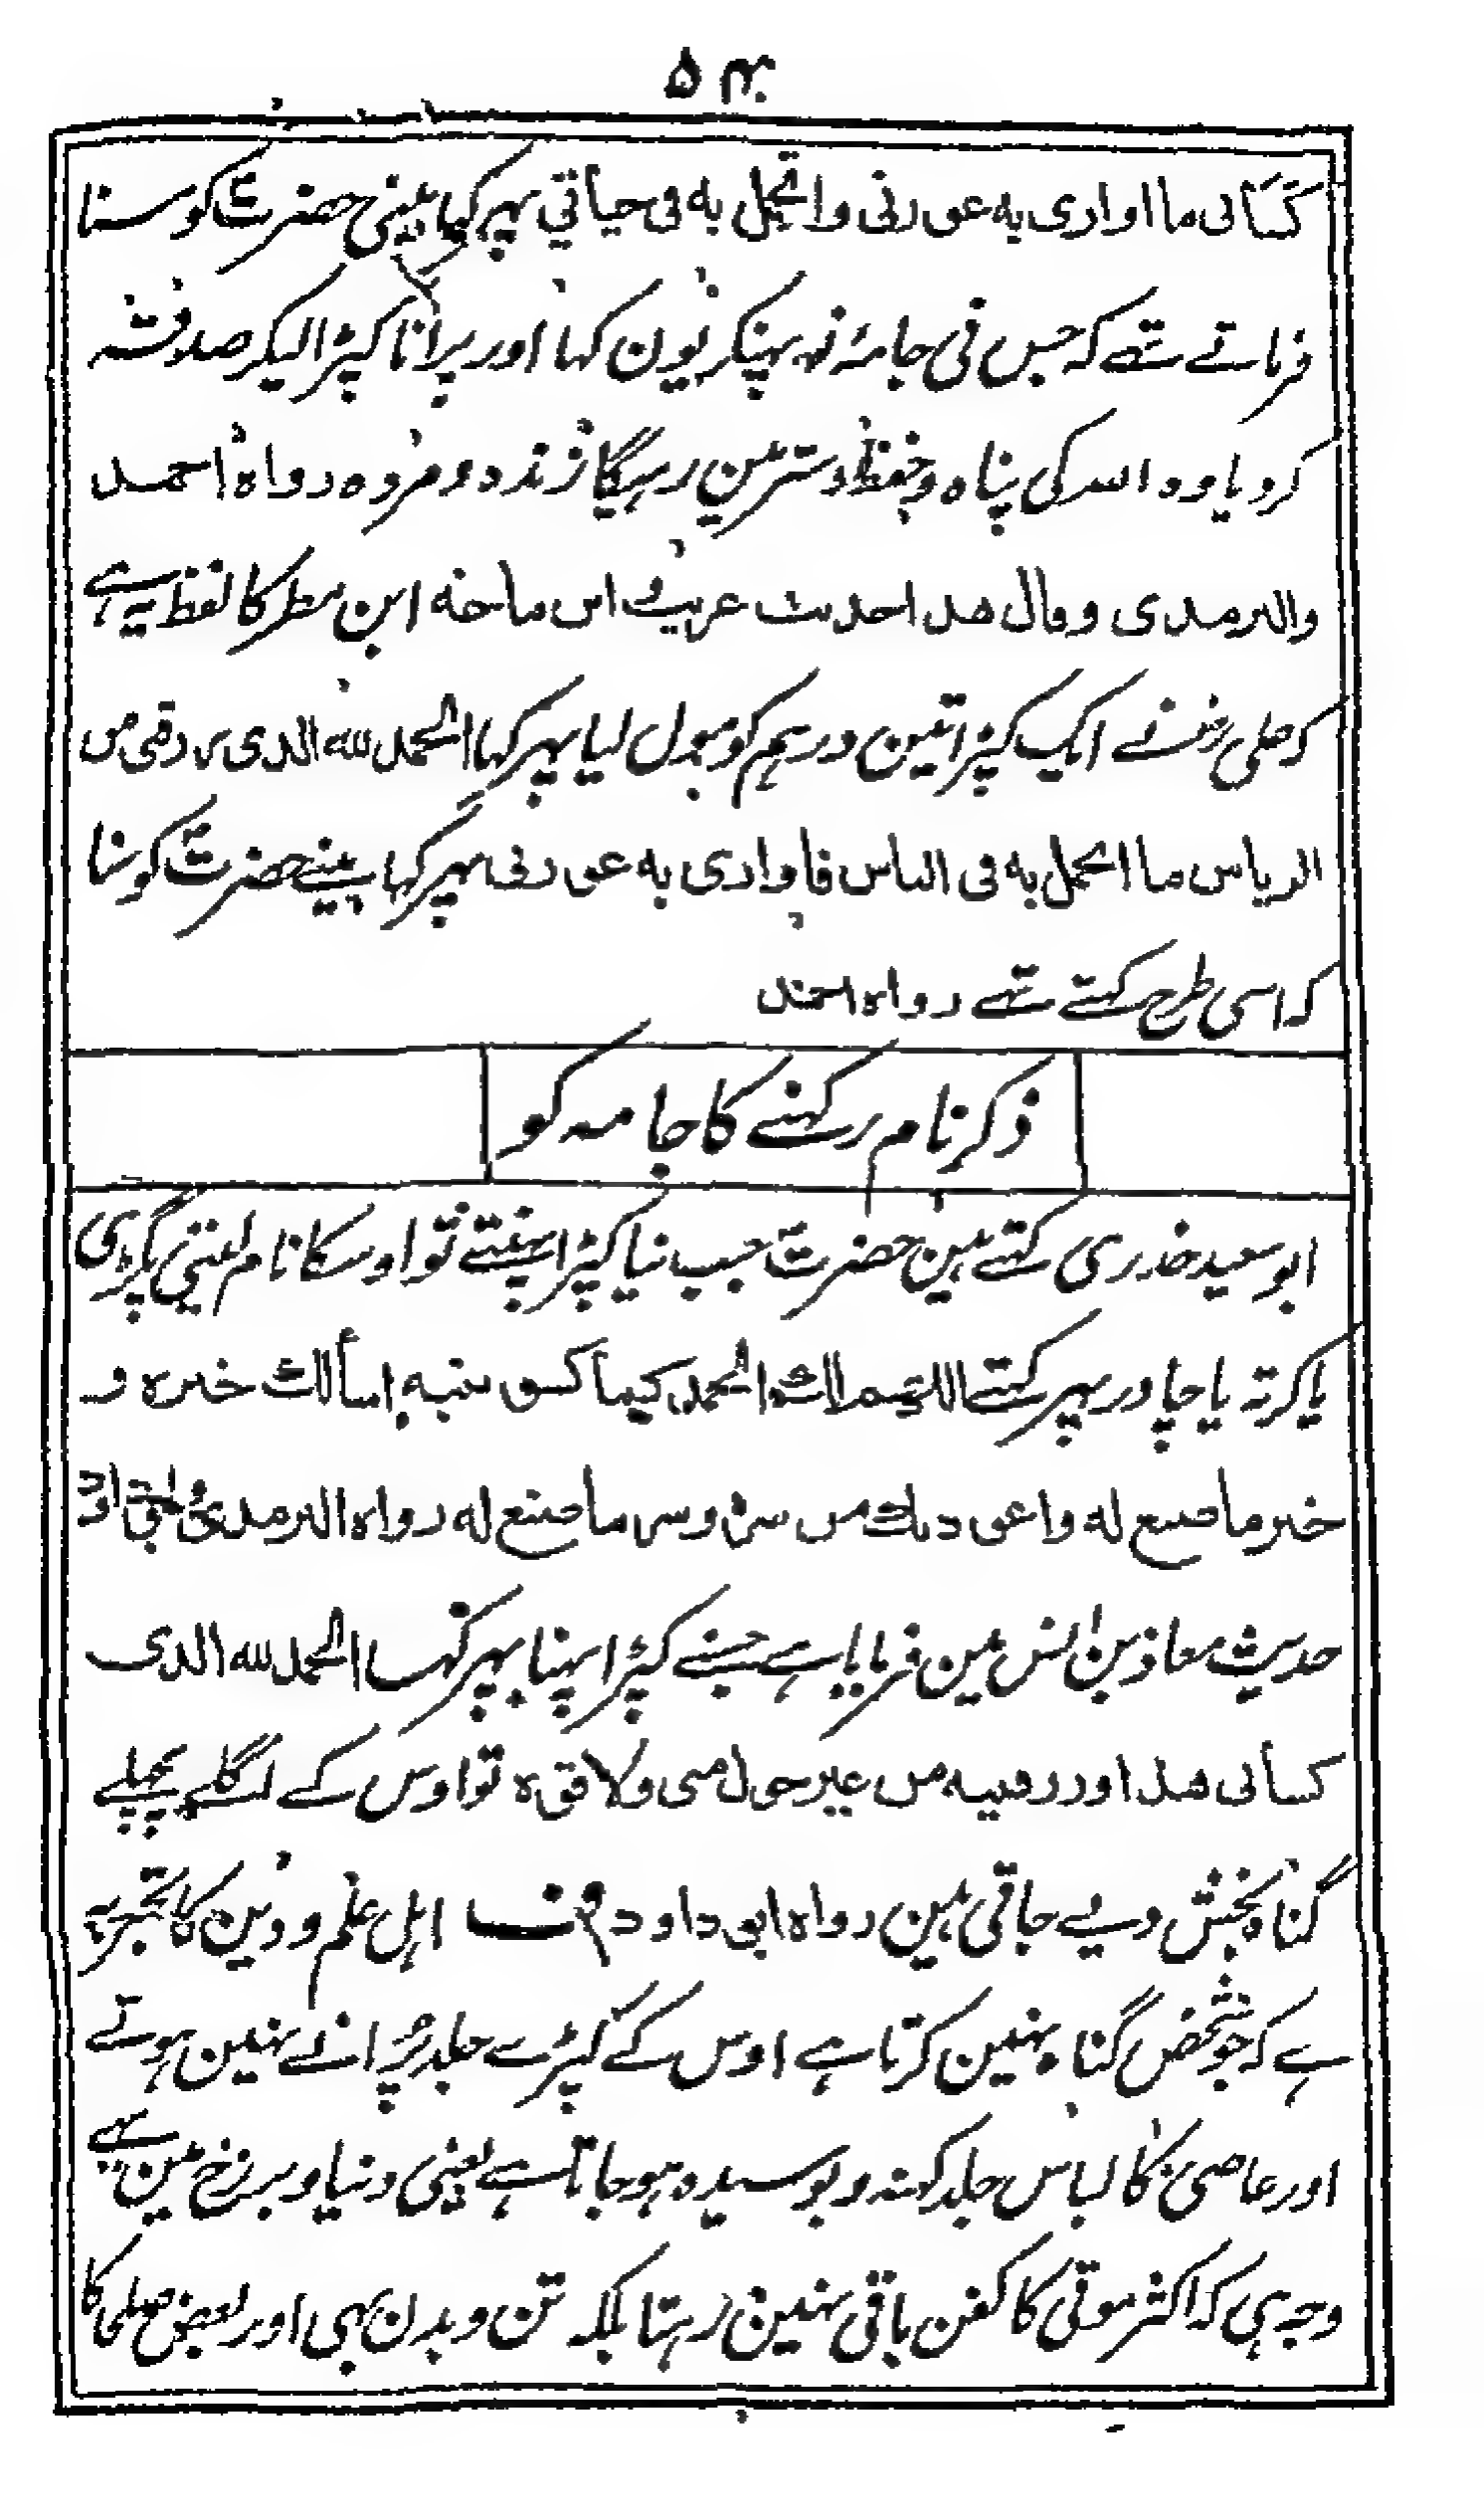 ۵۴
کسانی ما اواری به عورتی واتجمل به فی حیاتی پہر کہا مینی حضرت کو سنا
فرماتے تھے کہ جس نی جامۂ نو پہنکر یون کہا اور پرانا کپڑا لیکر صدقہ
کر دیا وہ اللہ کی پناہ و حفظ و ستر مین رہیگا زندہ و مردہ رواہ احمد
والترمذی وقال هذا حدیث غریب و ابن ماجه ابن مطر کا لفظ یہ ہے
کہ علی رض نے ایک کپڑا تین درہم کو مول لیا پہر کہا الحمد لله الذی رزقنی من
الریاش ما اتجمل به فی الناس فاواری به عورتی پہر کہا مینے حضرت کو سنا
کہ اسی طرح کہتے تھے رواہ احمد
ذکر نام رکہنے کا جامہ کو
ابو سعید خدری کہتے ہین حضرت جب نیا کپڑا پہنتے تو اوسکا نام لیتی پگڑی
یا کرتہ یا چادر پہر کہتے اللهم لك الحمد کما کسوتنیه اسألك خیره و
خیر ما صنع له واعوذ بك من شره وشر ما صنع له رواہ الترمذی
حدیث معاذ بن انس مین فرمایا ہے جسنے کپڑا پہنا پہر کہا الحمد لله الذی
کسانی هذا ورزقنیه من غیر حول منی ولا قوة تو اوس کے اگلے پچہلے
گناہ بخش دیے جاتی ہین رواہ ابو داود ف اہل علم و دین کا تجربہ
ہے کہ جو شخص گناہ نہین کرتا ہے اوس کے کپڑے جلد پرانے نہین ہوتے
اور عاصی کا لباس جلد کہنہ و بوسیدہ ہو جاتا ہے یعنی دنیا و برزخ مین یہی
وجہ ہی کہ اکثر موتی کا کفن باقی نہین رہتا بلکہ تن و بدن بہی اور بعض صلحا کا